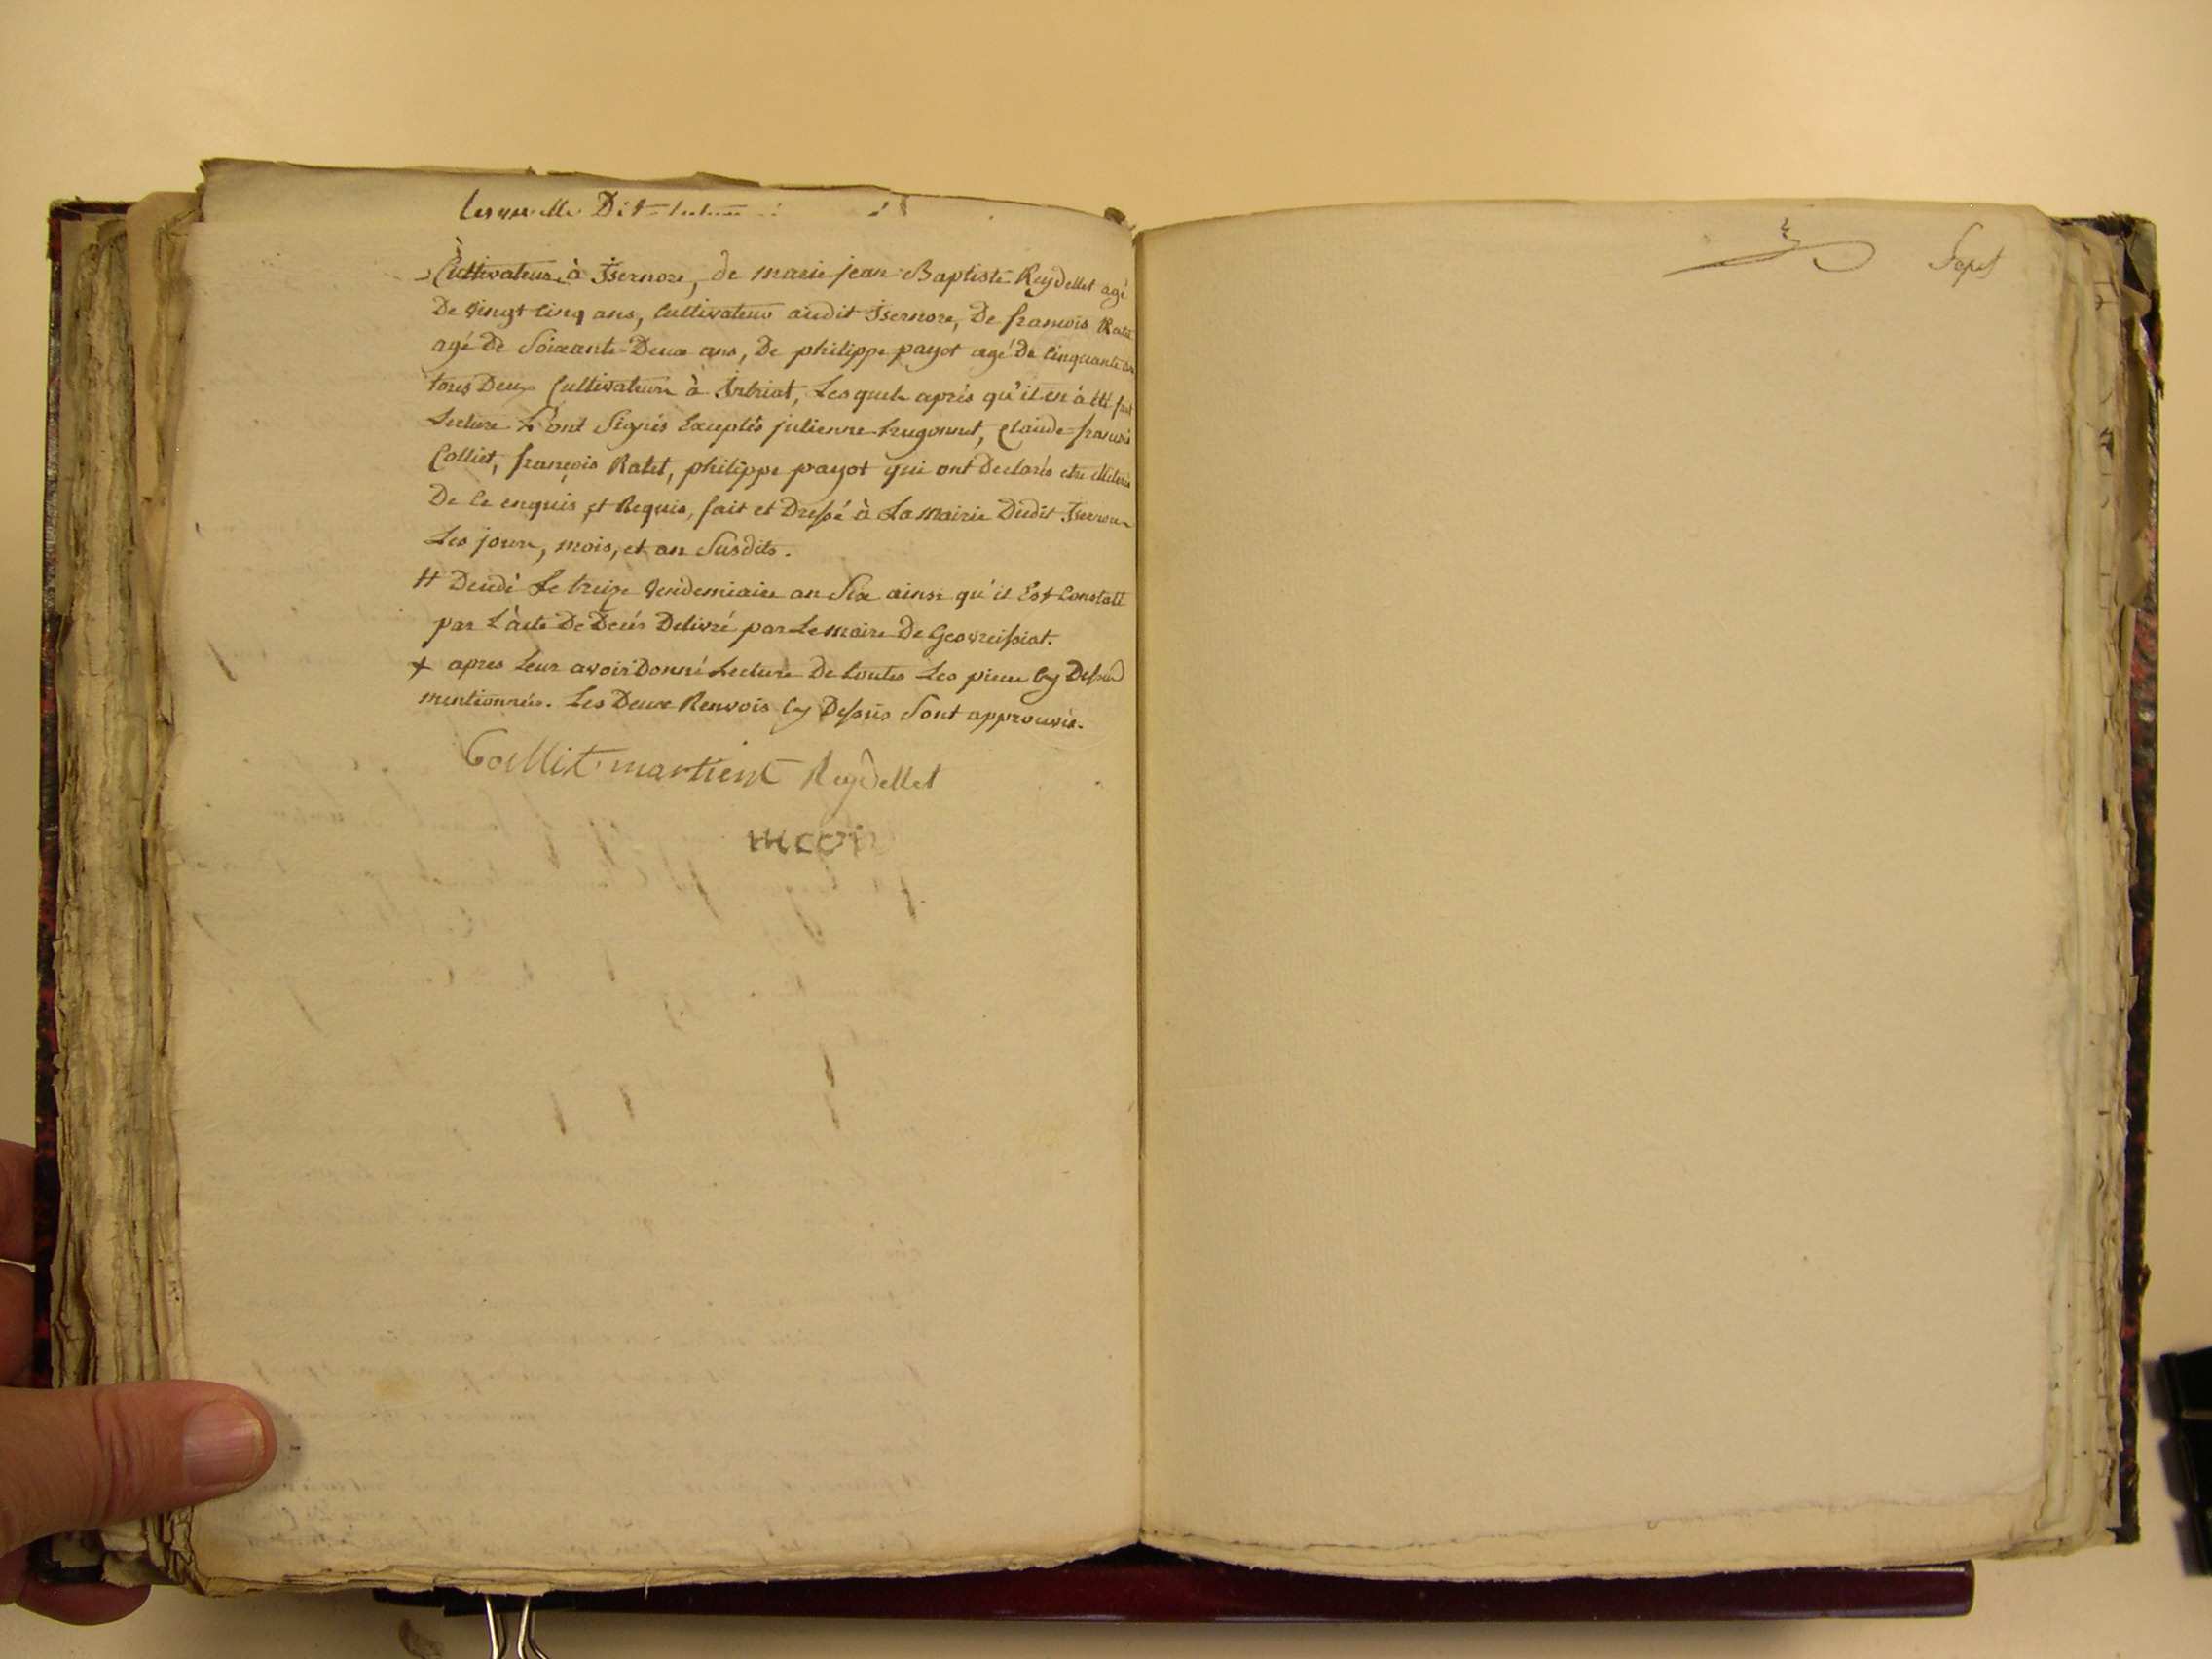 Cultivateur à Isernore, de marie jean Baptiste Reydellet agé
De vingt cinq ans, Cultivateur audit Isernore, De francois Ratet
agé de Soixante-Deux ans, De philippe payot agé De Cinquante ans
tous Deux Cultivateurs à Intriat, Lesquels aprés qu'il en à été fait
Lecture L'ont Signés Exceptés julienne hugonnet, Claude-francois
Colliet, françois Ratet, philippe payot qui ont Declarés etre illiterés
De Ce enquis et Requis, fait et Dressé à La mairie Dudit Isernore
Les jour, mois, et an Susdits.
# Decedé Le treize Vendemiaire an Six ainsi qu'il Est Constaté
par L'acte De Decés Delivré par Le maire De Geovreissiat.
+ apres Leur avoir Donné Lecture De toutes Les pieces Cy Dessus
mentionnées. Les Deux Renvois Cy Dessus Sont approuvés.
martient Reydellet
Sept